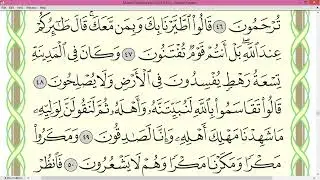 تُرْحَمُونَ ٤٦ قَالُوا۟ ٱطَّيَّرْنَا بِكَ وَبِمَن مَّعَكَ ۚ قَالَ طَٰٓئِرُكُمْ
عِندَ ٱللَّهِ ۖ بَلْ أَنتُمْ قَوْمٌ تُفْتَنُونَ ٤٧ وَكَانَ فِى ٱلْمَدِينَةِ
تِسْعَةُ رَهْطٍ يُفْسِدُونَ فِى ٱلْأَرْضِ وَلَا يُصْلِحُونَ ٤٨
قَالُوا۟ تَقَاسَمُوا۟ بِٱللَّهِ لَنُبَيِّتَنَّهُۥ وَأَهْلَهُۥ ثُمَّ لَنَقُولَنَّ لِوَلِيِّهِۦ
مَا شَهِدْنَا مَهْلِكَ أَهْلِهِۦ وَإِنَّا لَصَٰدِقُونَ ٤٩ وَمَكَرُوا۟
مَكْرًا وَمَكَرْنَا مَكْرًا وَهُمْ لَا يَشْعُرُونَ ٥٠ فَٱنظُرْ